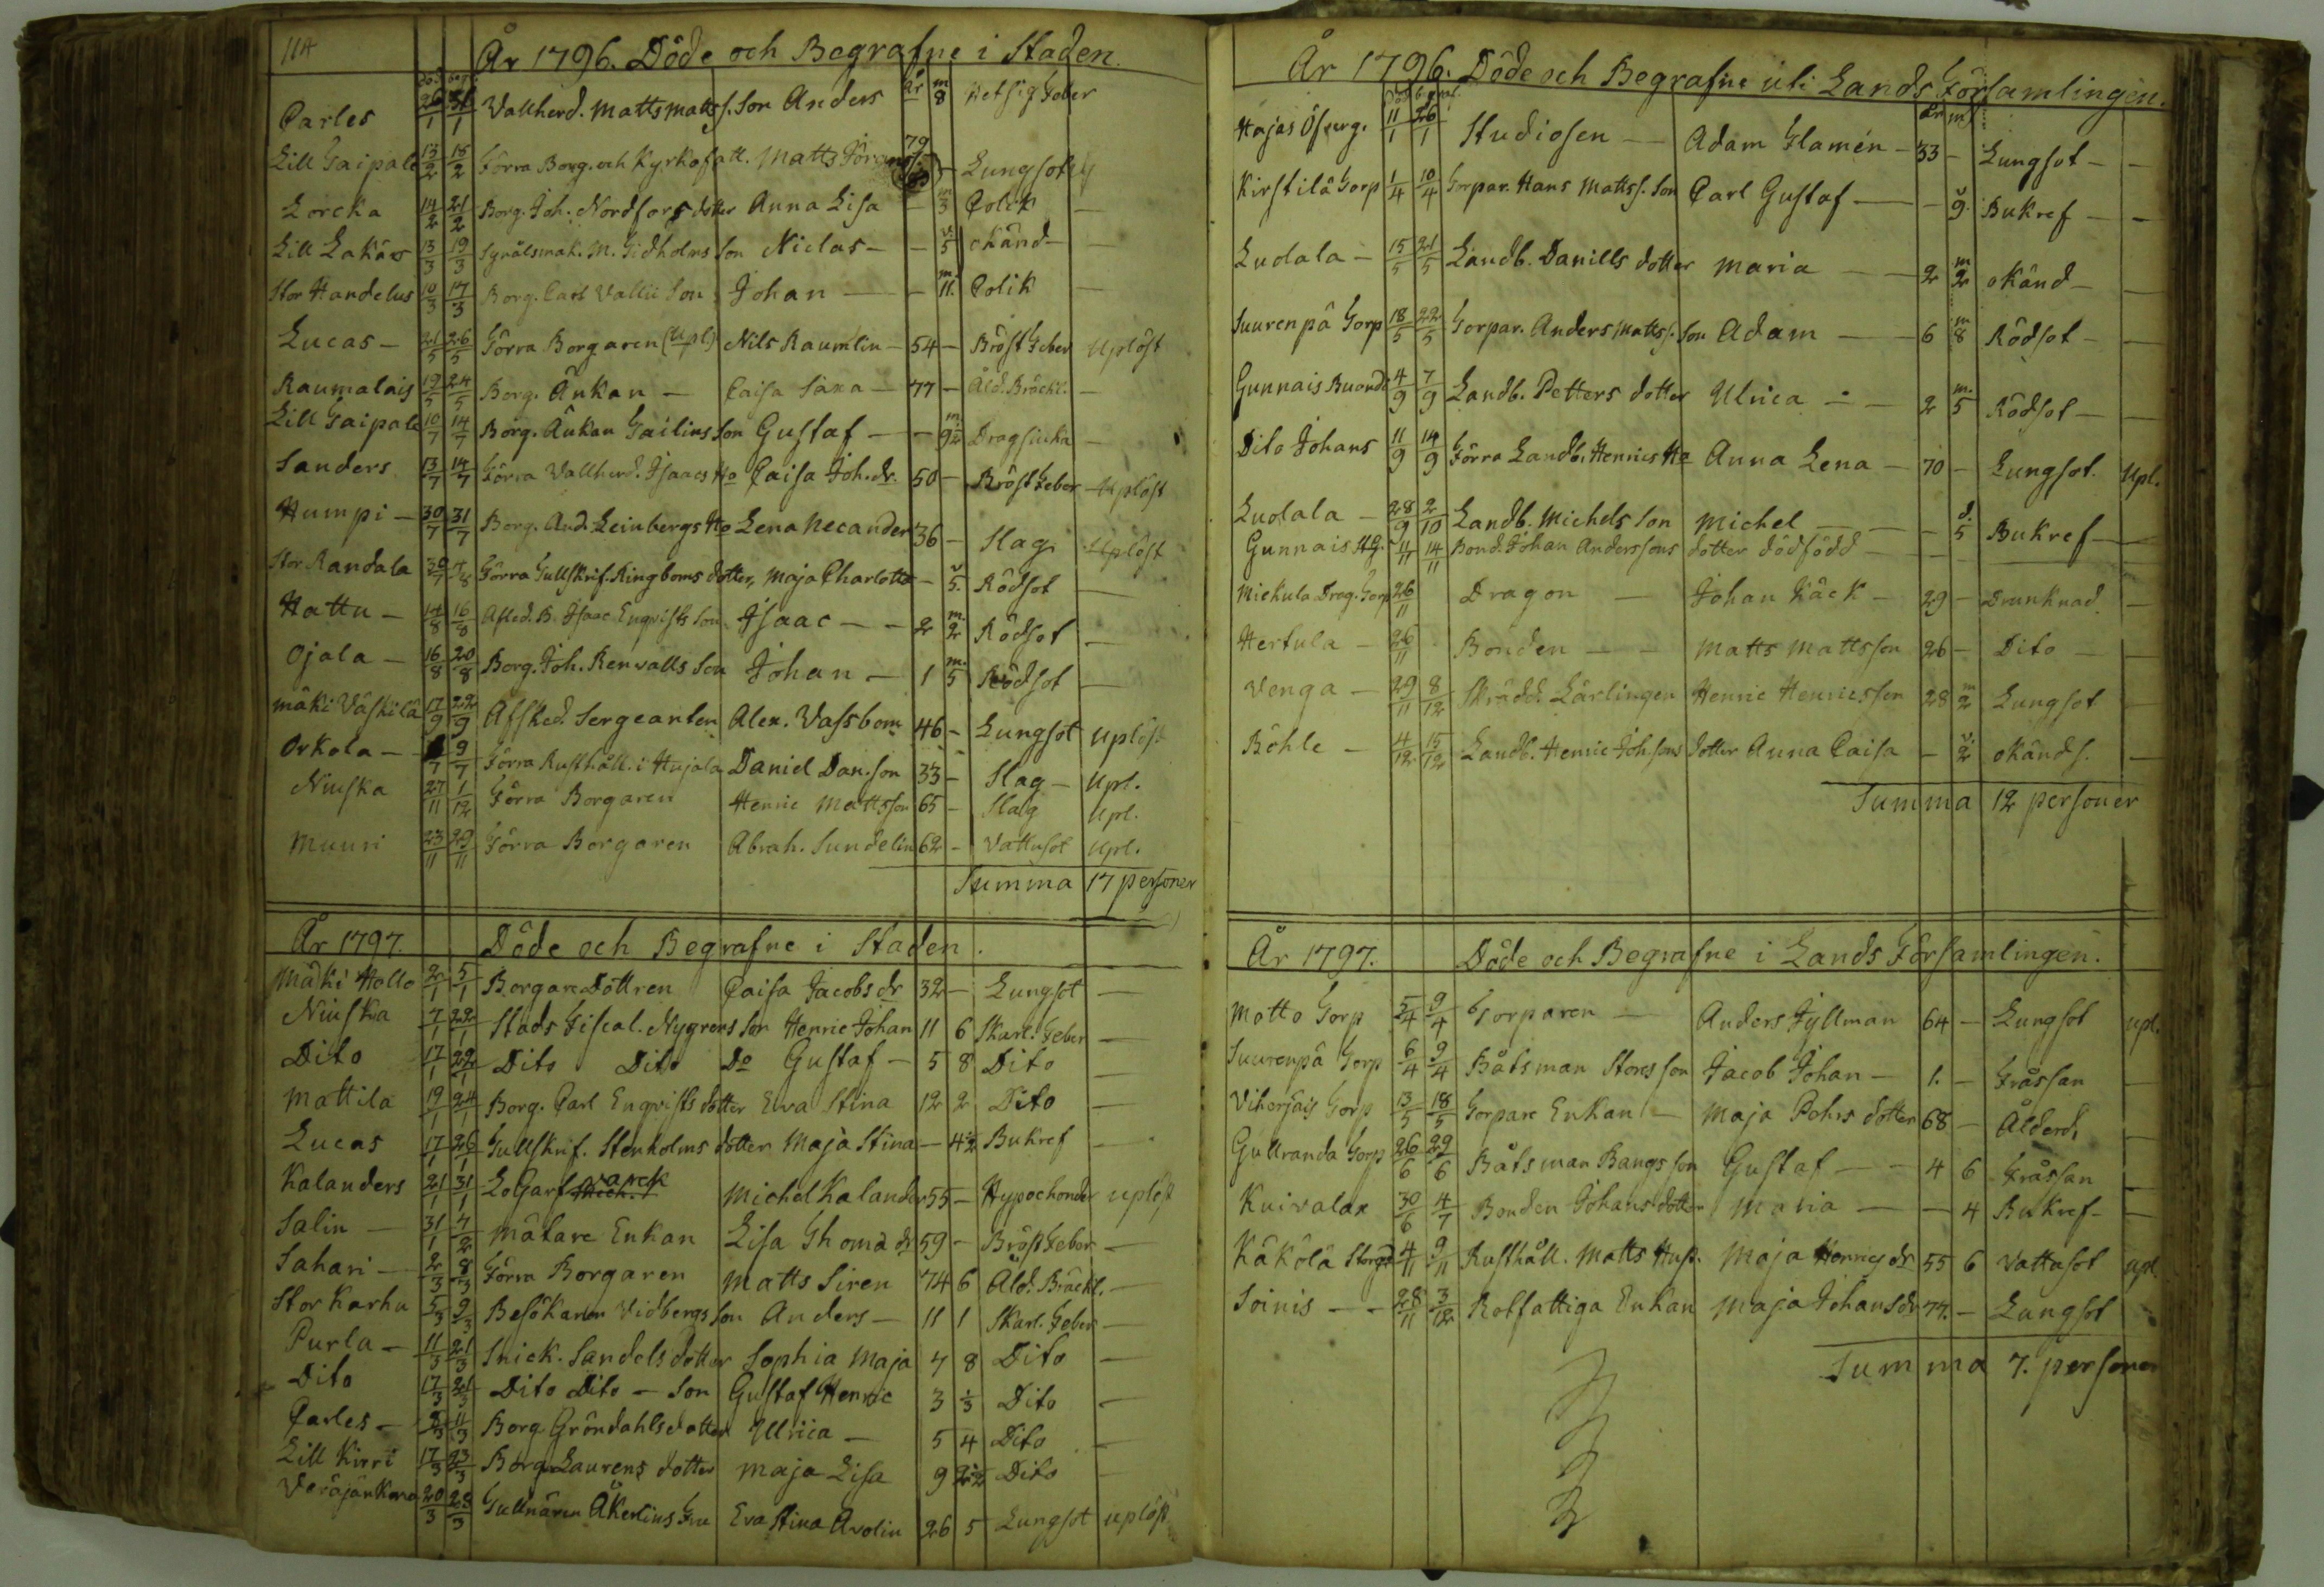 114
År 1796. Döde och Begrafne i Staden.
död begr. år m
Carles 26/1 31/1 Vallherd. Matts Mattss. Son Anders 8 Hetsig Feber
Lill Gaipale 13/2 18/2 Förra Borg. och Kyrkofatt. Matts 79 Lungsot
Lorcka 14/2 21/2 Borg. Joh. Nordfors dotter Anna Lisa — m 3 Colik —
Lill Lakäs 13/3 19/3 M. Gidholms Son Niclas — — v. 5 okänd — —
Stor Handelus 10/3 17/3 Borg. Carl Vallii Son Johan — — m. 11. Colik —
Lucas — 21/5 26/5 Förra Borgaren (Upl) Nils Raumlin — 54 — Bröst Feber Uplöst
Raumalais 19/5 24/5 Borg. Änkan — Caisa Saxa — 77 — Åld. Bräckl. —
Lill Gaipale 10/7 14/7 Borg. Änkan Gailins Son Gustaf — — m. 9 1/2 Dragsiuka —
Sanders 13/7 14/7 Förra Vallherd. Isaacs Ho Caisa Joh. dr. 50 — Bröst Feber — Uplöst
Humpi — 30/7 31/7 Borg. And. Leinbergs Ho Lena Necander 36 — Slag Uplöst
Stor Randala 30/7 7/8 Förra Tullskrif. Ringboms dotter, Maja Charlotta — v 5. Rödsot —
Hattu — 14/8 16/8 Afsked. B. Isaac Enqvists Son Isaac — — 2 m. 2 Rödsot —
Ojala — 16/8 20/8 Borg. Joh. Renvalls Son Johan — 1 m. 5 Rödsot —
Mäki Väskilä 17/9 22/9 Afsked. Sergeanten Alex. Vassbom 46 — Lungsot uplöst
Orkola — 9/7 Förra Rusthåll. i Hujala Daniel Dan.son 33 — Slag — Upl.
Niuska 27/11 1/12 Förra Borgaren Henric Mattsson 65 — Slag Upl.
Muuri 23/11 29/11 Förra Borgaren Abrah. Sundelin 62 — Vattusot Upl.
Summa 17 personer
År 1797. Döde och Begrafne i Staden.
Mäki Hollo 2/1 5/1 Borgare Dottren Caisa Jacobs dr 32 — Lungsot —
Niuska 7/1 22/1 Stads Fiscal. Nygrens Son Henric Johan 11 6 Skarl. Feber —
Dito 17/1 22/1 Dito Dito Do Gustaf — 5 8 Dito —
Mattila 19/1 24/1 Borg. Carl Enqvists dotter Eva Stina 12 2 Dito —
Lucas 17/1 26/1 Tullskrif. Stenholms dotter Maja Stina — 4 1/2 Bukref —
Kalanders 21/1 31/1 LoGarfvarek Michel Kalander 55 — Hypochonder uplöst
Salin — 31/1 7/2 Mätare Enkan Lisa Thomä dr 59 — Bröst Feber —
Sahari — 2/3 8/3 Förra Borgaren Matts Siren 74 6 Åld. Bräckl. —
Stor Karhu 5/3 9/3 Besökaren Vidbergs Son Anders — 11 1 Skarl. Feber —
Purla — 11/3 21/3 Snick. Sandels dotter Sophia Maja 7 8 Dito —
Dito 17/3 21/3 Dito Dito — Son Gustaf Henric 3 1/3 Dito —
Carles — 11/3 Borg. Gröndahls dotter Ulrica — 5 4 Dito —
Lill Kirri 17/3 23/3 Borg. Laurens dotter Maja Lisa 9 2 1/2 Dito —
Veräjänkorva 20/3 28/3 Tullnären Åkerlins Fru Eva Stina Avolin 26 5 Lungsot uplöst
År 1796. Döde och Begrafne uti Lands Församlingen.
död begraf. år m
Hajas Öfverg. 11/1 26/1 Studiosen — Adam Flamén — 33 — Lungsot — —
Kirstilä Torp 1/4 10/4 Torpar. Hans Mattss. Son Carl Gustaf — — v 9. Bukref — —
Ludala — 15/5 21/5 Landb. Danills dotter Maria — — 2 m 2 okänd — —
Suurenpä Torp 18/5 22/5 Torpar. Anders Mattss. Son Adam — 6 m 8 Rödsot — —
Gunnais Buonda 4/9 7/9 Landb. Petters dotter Ulrica — — 2 m. 5 Rödsot — —
Dito Johans 11/9 14/9 Förra Landb. Henrics Ho Anna Lena — 70 — Lungsot. Upl.
Ludala — 28/9 2/10 Landb. Michels Son Michel — — — d. 5 Bukref —
Gunnais 11/11 14/11 Bond. Johan Anderssons dotter dödfödd — —
Mickula Drag. Torp 26/11 Dragon — Johan Käck — 29 — Drunknad. —
Hertula — 26/11 Bonden — — Matts Mattsson 26 — Dito — —
Venga — 29/11 8/12 Skrädd. Lärlingen Henric Henricsson 28 m 2 Lungsot —
Böhle — 4/12 15/12 Landb. Henric Johssons dotter Anna Caisa — v. 2 okänds. —
Summa 12 personer
År 1797. Döde och Begrafne i Lands Församlingen.
Motto Torp 5/4 9/4 Torparen — Anders Jyllman 64 — Lungsot upl.
Suurenpä Torp 6/4 9/4 Båtsman Stores son Jacob Johan — 1. — Fråssan —
Viherjais Torp 13/5 18/5 Torpare Enkan — Maja Pehrs dotter 68 — Ålderd. —
Gullranda Torp 26/6 29/6 Båtsman Bangs son Gustaf — — 4 6 Fråssan —
Kuivalax 30/6 4/7 Bonden Johans dotter Maria — — 4 Bukref — —
Käkölä Storgd 4/11 9/11 Rusthåll. Matts Hust. Maja Henrics dr 55 6 Vattusot upl.
Soinis — — 28/11 3/12 Rotfattiga Enkan Maja Johans dr 77. — Lungsot
Summa 7. personer